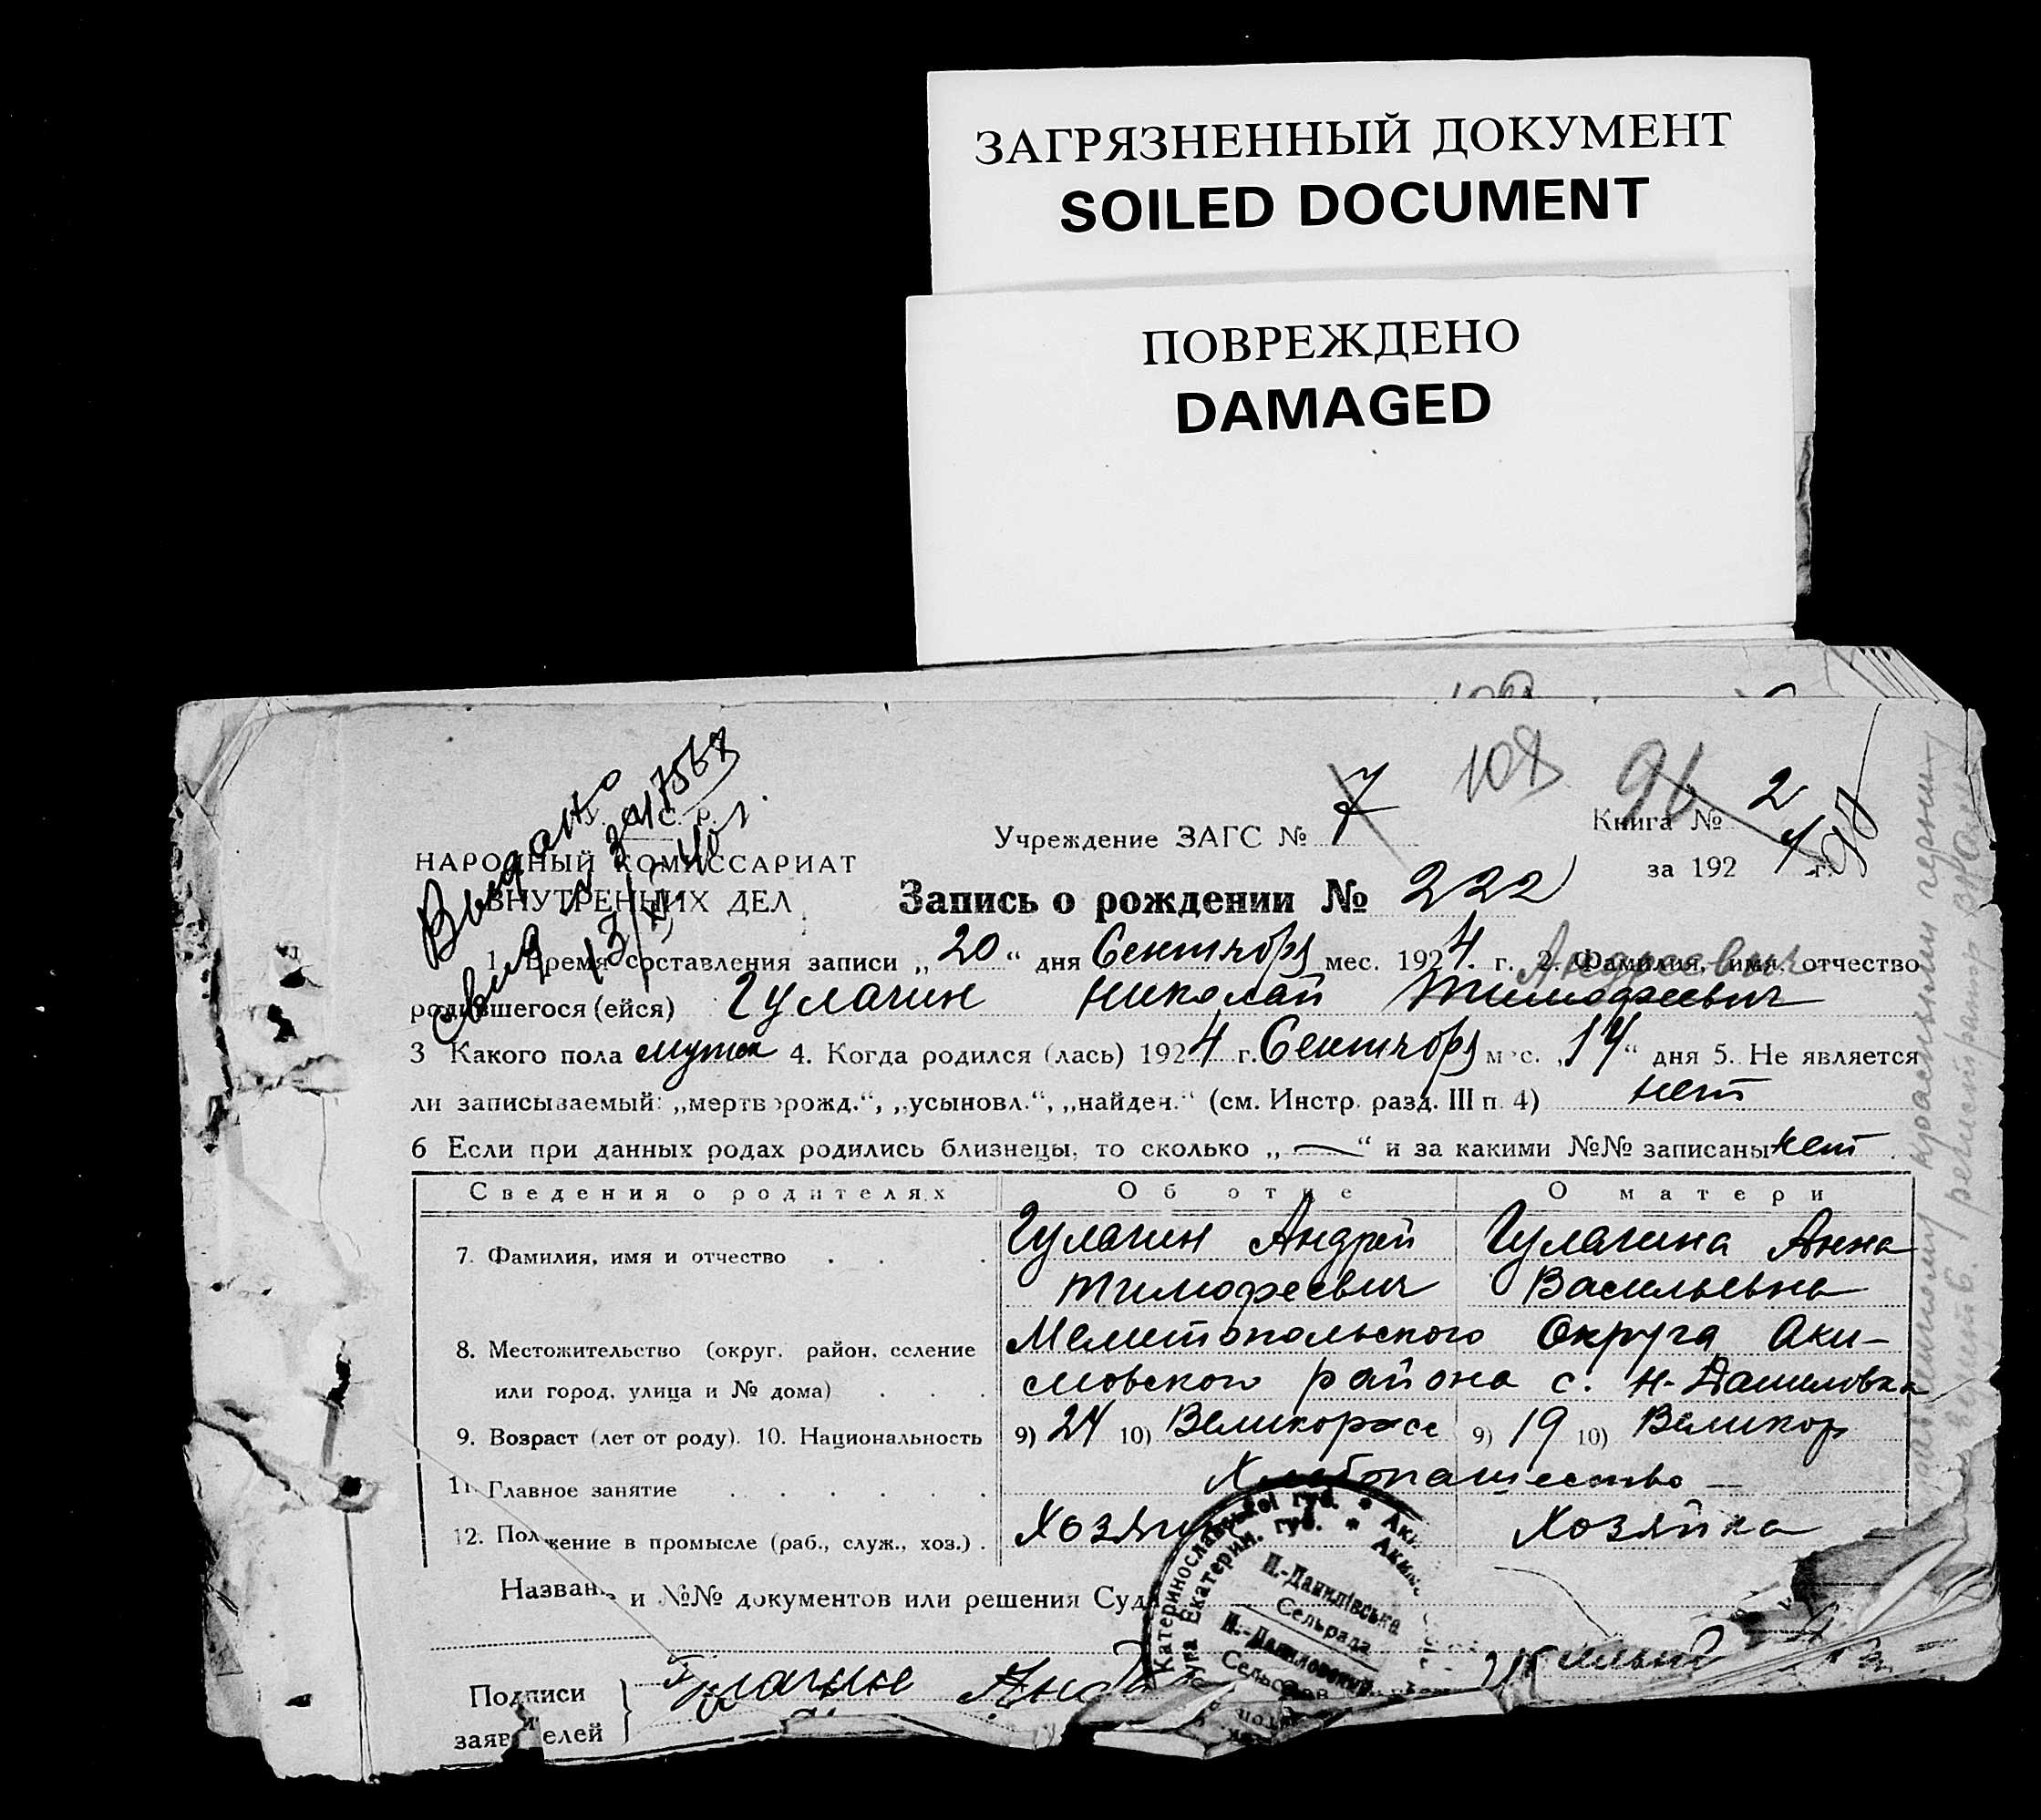 ЗАГРЯЗНЕННЫЙ ДОКУМЕНТ
SOILED DOCUMENT
ПОВРЕЖДЕНО
DAMAGED
108 96 2
Выдано
У. С. С. Р.
Учреждение ЗАГС № 7
Книга №
НАРОДНЫЙ КОМИССАРИАТ
за 192 4 г.
ВНУТРЕННИХ ДЕЛ.
Запись о рождении № 222
1. Время составления записи „20“ дня Сентября мес. 1924 г. 2. Фамилия, имя, отчество
Андреевич
родившегося (ейся) Гулагин Николай Тимофеевич
3 Какого пола мужск 4. Когда родился (лась) 1924 г. Сентября мес. „14“ дня 5. Не является
ли записываемый: „мертворожд.“, „усыновл.“, „найден.“ (см. Инстр. разд. III п. 4) нет
6 Если при данных родах родились близнецы, то сколько „—“ и за какими №№ записаны нет
Сведения о родителях Об отце О матери
7. Фамилия, имя и отчество Гулагин Андрей Гулагина Анна
Тимофеевич Васильевна
8. Местожительство (округ, район, селение Мелитопольского Округа Аки-
или город, улица и № дома) мовского района с. Н-Даниловка
9. Возраст (лет от роду). 10. Национальность 9) 24 10) Великоросс 9) 19 10) Великор
11. Главное занятие Хлебопашество —
12. Положение в промысле (раб., служ., хоз.) Хозяин Хозяйка
Названь и №№ документов или решения Суда
Катеринославської губ. * Аки
Екатерин. губ. * Аким
Н.-Данилівська
Сельрада
Н.-Даниловский
Сельсов
Подписи
заявителей